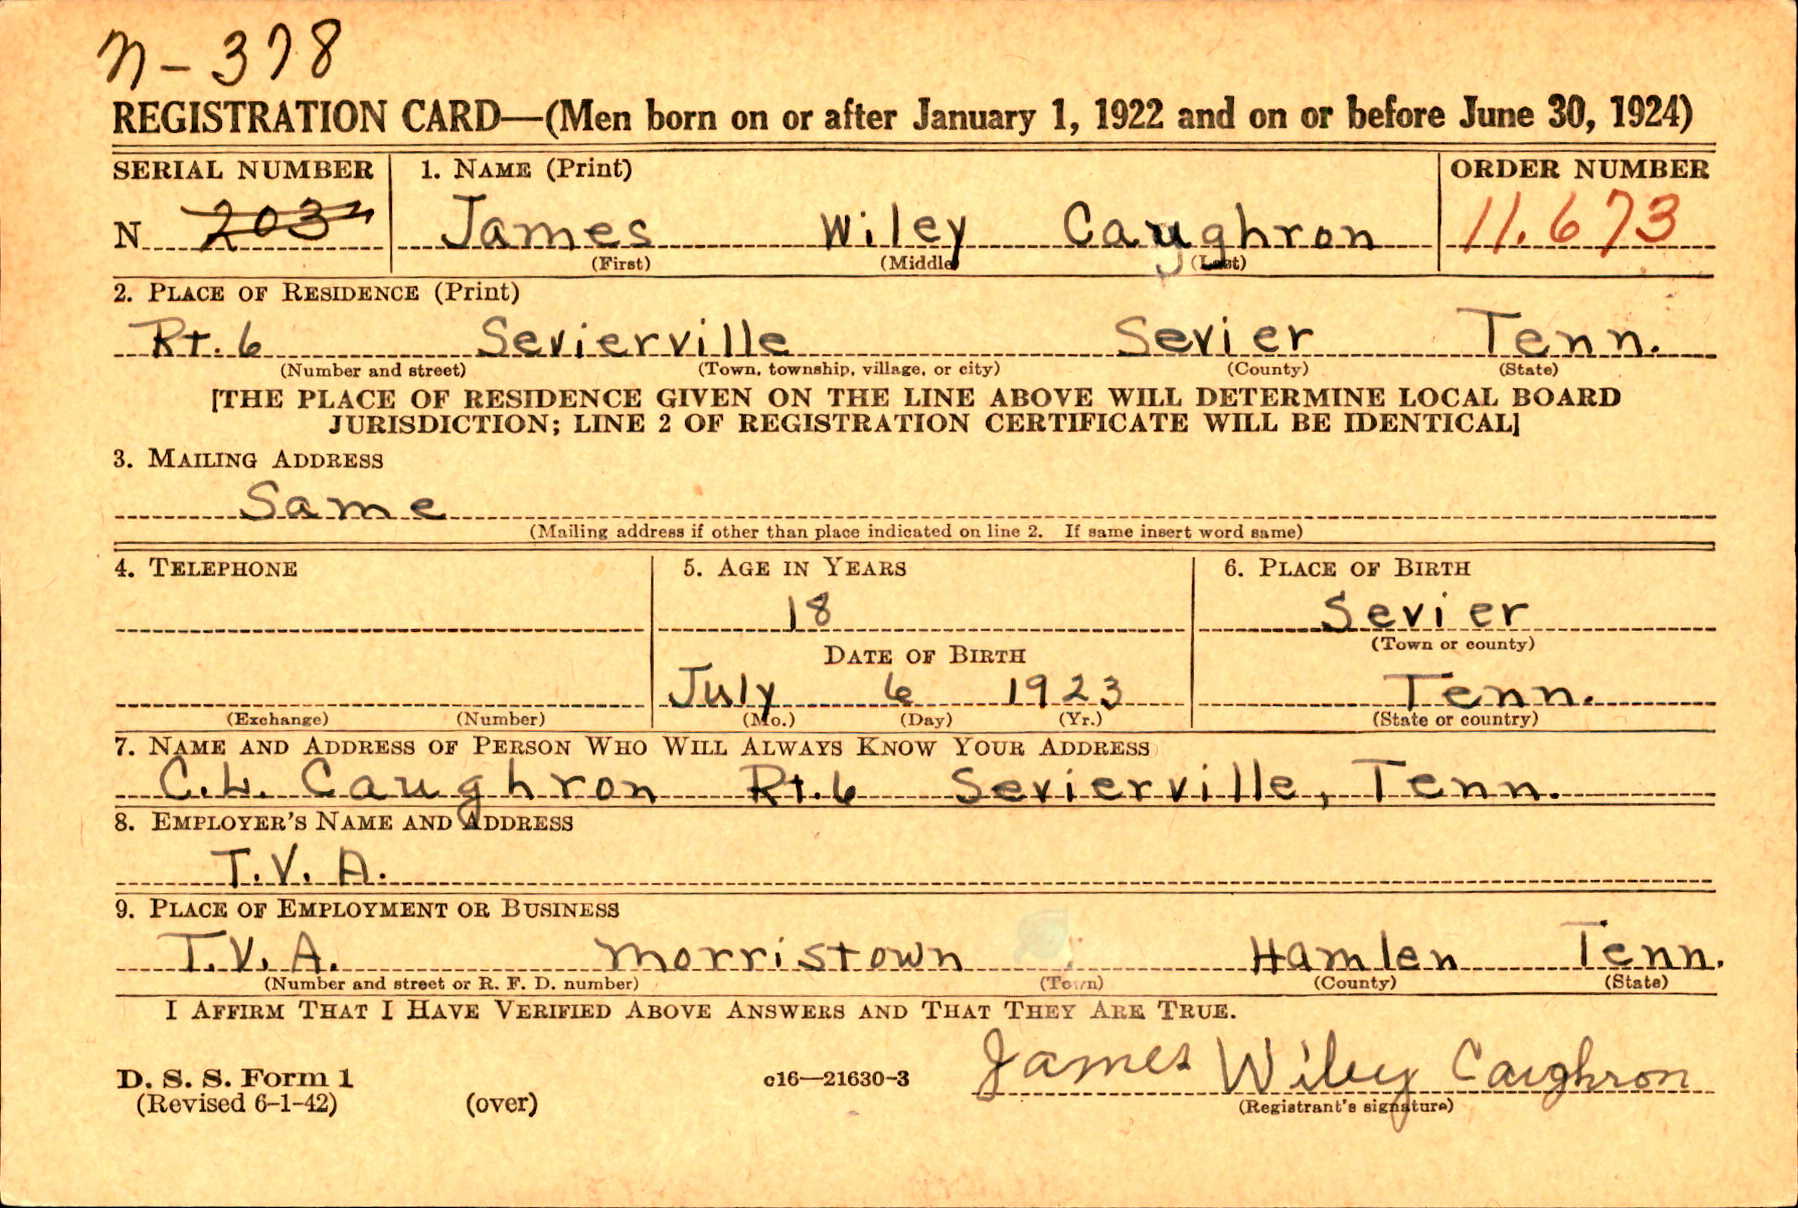 N-378
REGISTRATION CARD—(Men born on or after January 1, 1922 and on or before June 30, 1924)
SERIAL NUMBER 1. NAME (Print) ORDER NUMBER
N 203 James Wiley Caughron 11.673
(First) (Middle) (Last)
2. PLACE OF RESIDENCE (Print)
Rt. 6 Sevierville Sevier Tenn.
(Number and street) (Town, township, village, or city) (County) (State)
[THE PLACE OF RESIDENCE GIVEN ON THE LINE ABOVE WILL DETERMINE LOCAL BOARD
JURISDICTION; LINE 2 OF REGISTRATION CERTIFICATE WILL BE IDENTICAL]
3. MAILING ADDRESS
Same
(Mailing address if other than place indicated on line 2. If same insert word same)
4. TELEPHONE 5. AGE IN YEARS 6. PLACE OF BIRTH
18 Sevier
(Town or county)
DATE OF BIRTH
July 6 1923 Tenn.
(Exchange) (Number) (Mo.) (Day) (Yr.) (State or country)
7. NAME AND ADDRESS OF PERSON WHO WILL ALWAYS KNOW YOUR ADDRESS
C.L. Caughron Rt. 6 Sevierville, Tenn.
8. EMPLOYER'S NAME AND ADDRESS
T.V.A.
9. PLACE OF EMPLOYMENT OR BUSINESS
T.V.A. Morristown Hamlen Tenn.
(Number and street or R. F. D. number) (Town) (County) (State)
I AFFIRM THAT I HAVE VERIFIED ABOVE ANSWERS AND THAT THEY ARE TRUE.
James Wiley Caughron
D. S. S. Form 1 c16—21630-3
(Revised 6-1-42) (over) (Registrant's signature)